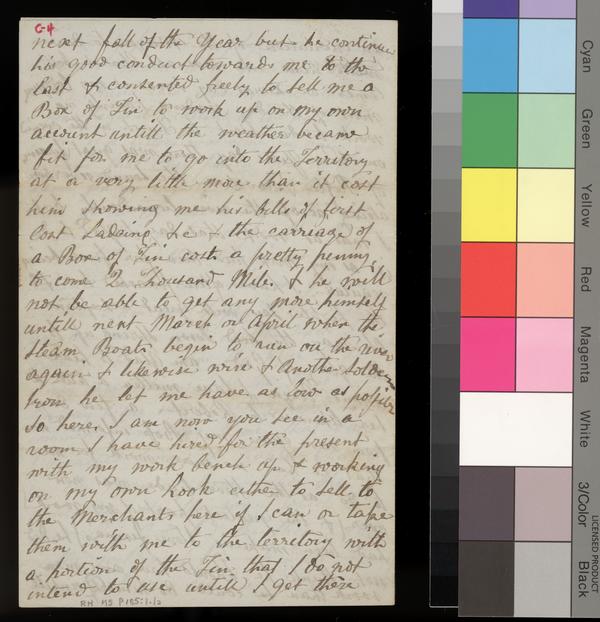 G-4
next fall of the Year but he continue
his good conduct towards me to the
last & consented freely to sell me a
Box of Tin to work up on my own
account untill the weather became
fit for me to go into the Territory
at a very little more than it cost
him showing me his bills of first
Cost Ladaing &c & the carriage of
a Box of Tin costs a pretty penny
to come 2 Thousand Mile. & he will
not be able to get any more himself
untill next March or April when the
Steam Boats begin to run on the river
again & likewise wire & Another Solder
Iron he let me have as low as possible
so here I am now you see in a
room I have hired for the present
with my work bench up & working
on my own hook either to sell to
the Merchants here if I can or take
them with me to the territory with
a portion of the Tin that I do not
intend to use untill I get there
RH MS P195:1.2
Cyan
Green
Yellow
Red
Magenta
White
3/Color
Black
LICENSED PRODUCT